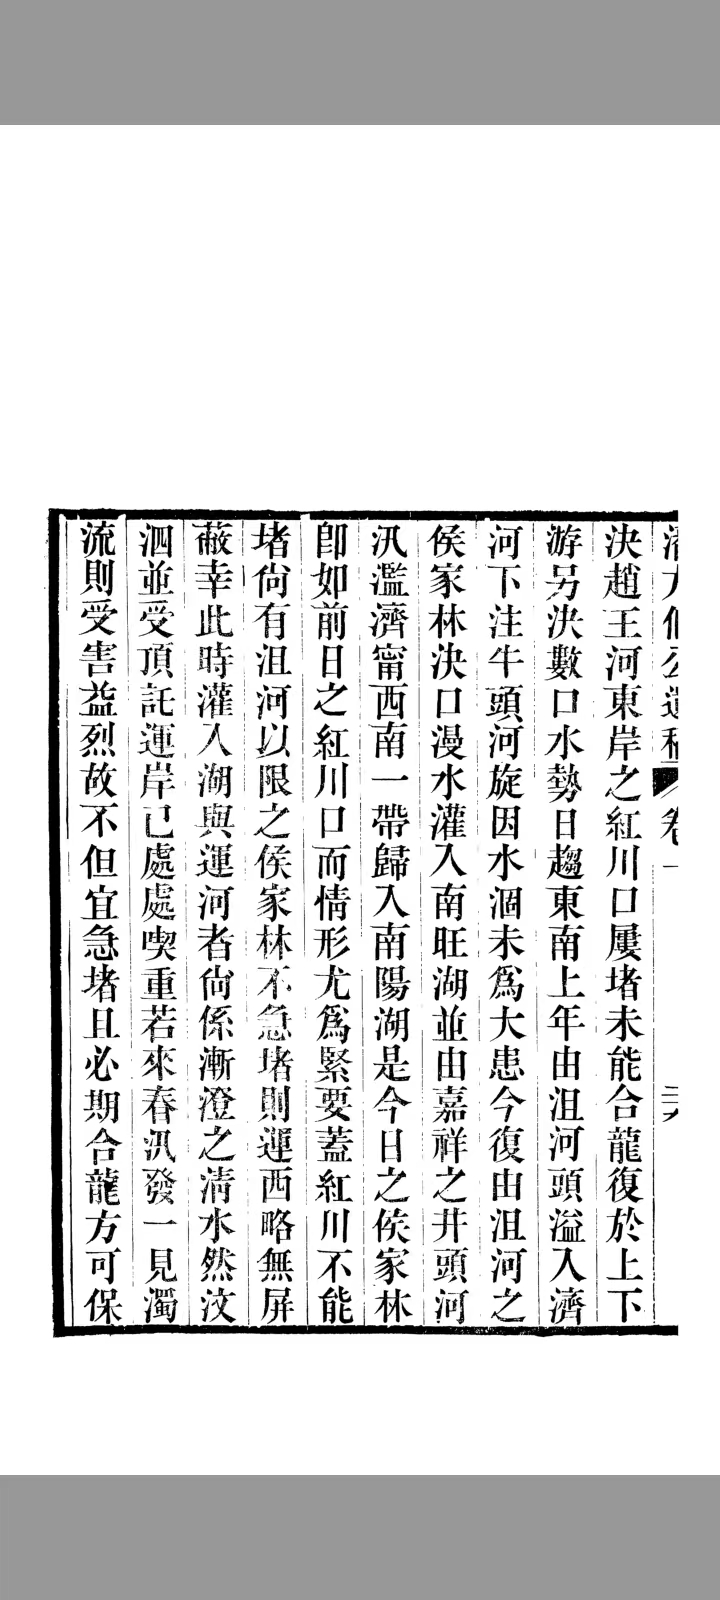 潘方伯公遺稿 卷一
決趙王河東岸之紅川口屢堵未能合龍復於上下
游另決數口水勢日趨東南上年由沮河頭溢入濟
河下注牛頭河旋因水涸未爲大患今復由沮河之
侯家林決口漫水灌入南旺湖並由嘉祥之井頭河
汎濫濟甯西南一帶歸入南陽湖是今日之侯家林
卽如前日之紅川口而情形尤爲緊要蓋紅川不能
堵尙有沮河以限之侯家林不急堵則運西略無屏
蔽幸此時灌入湖與運河者尙係漸澄之淸水然汶
泗並受頂託運岸已處處喫重若來春汛發一見濁
流則受害益烈故不但宜急堵且必期合龍方可保